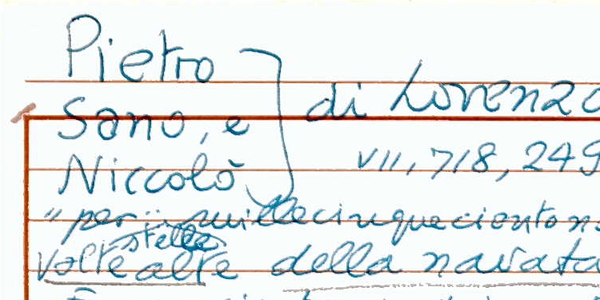 Pietro
Sano, e } di Lorenzo
Niccolò VII, 718, 249
"per" millecinquecientono
stelle
volte alte della navata